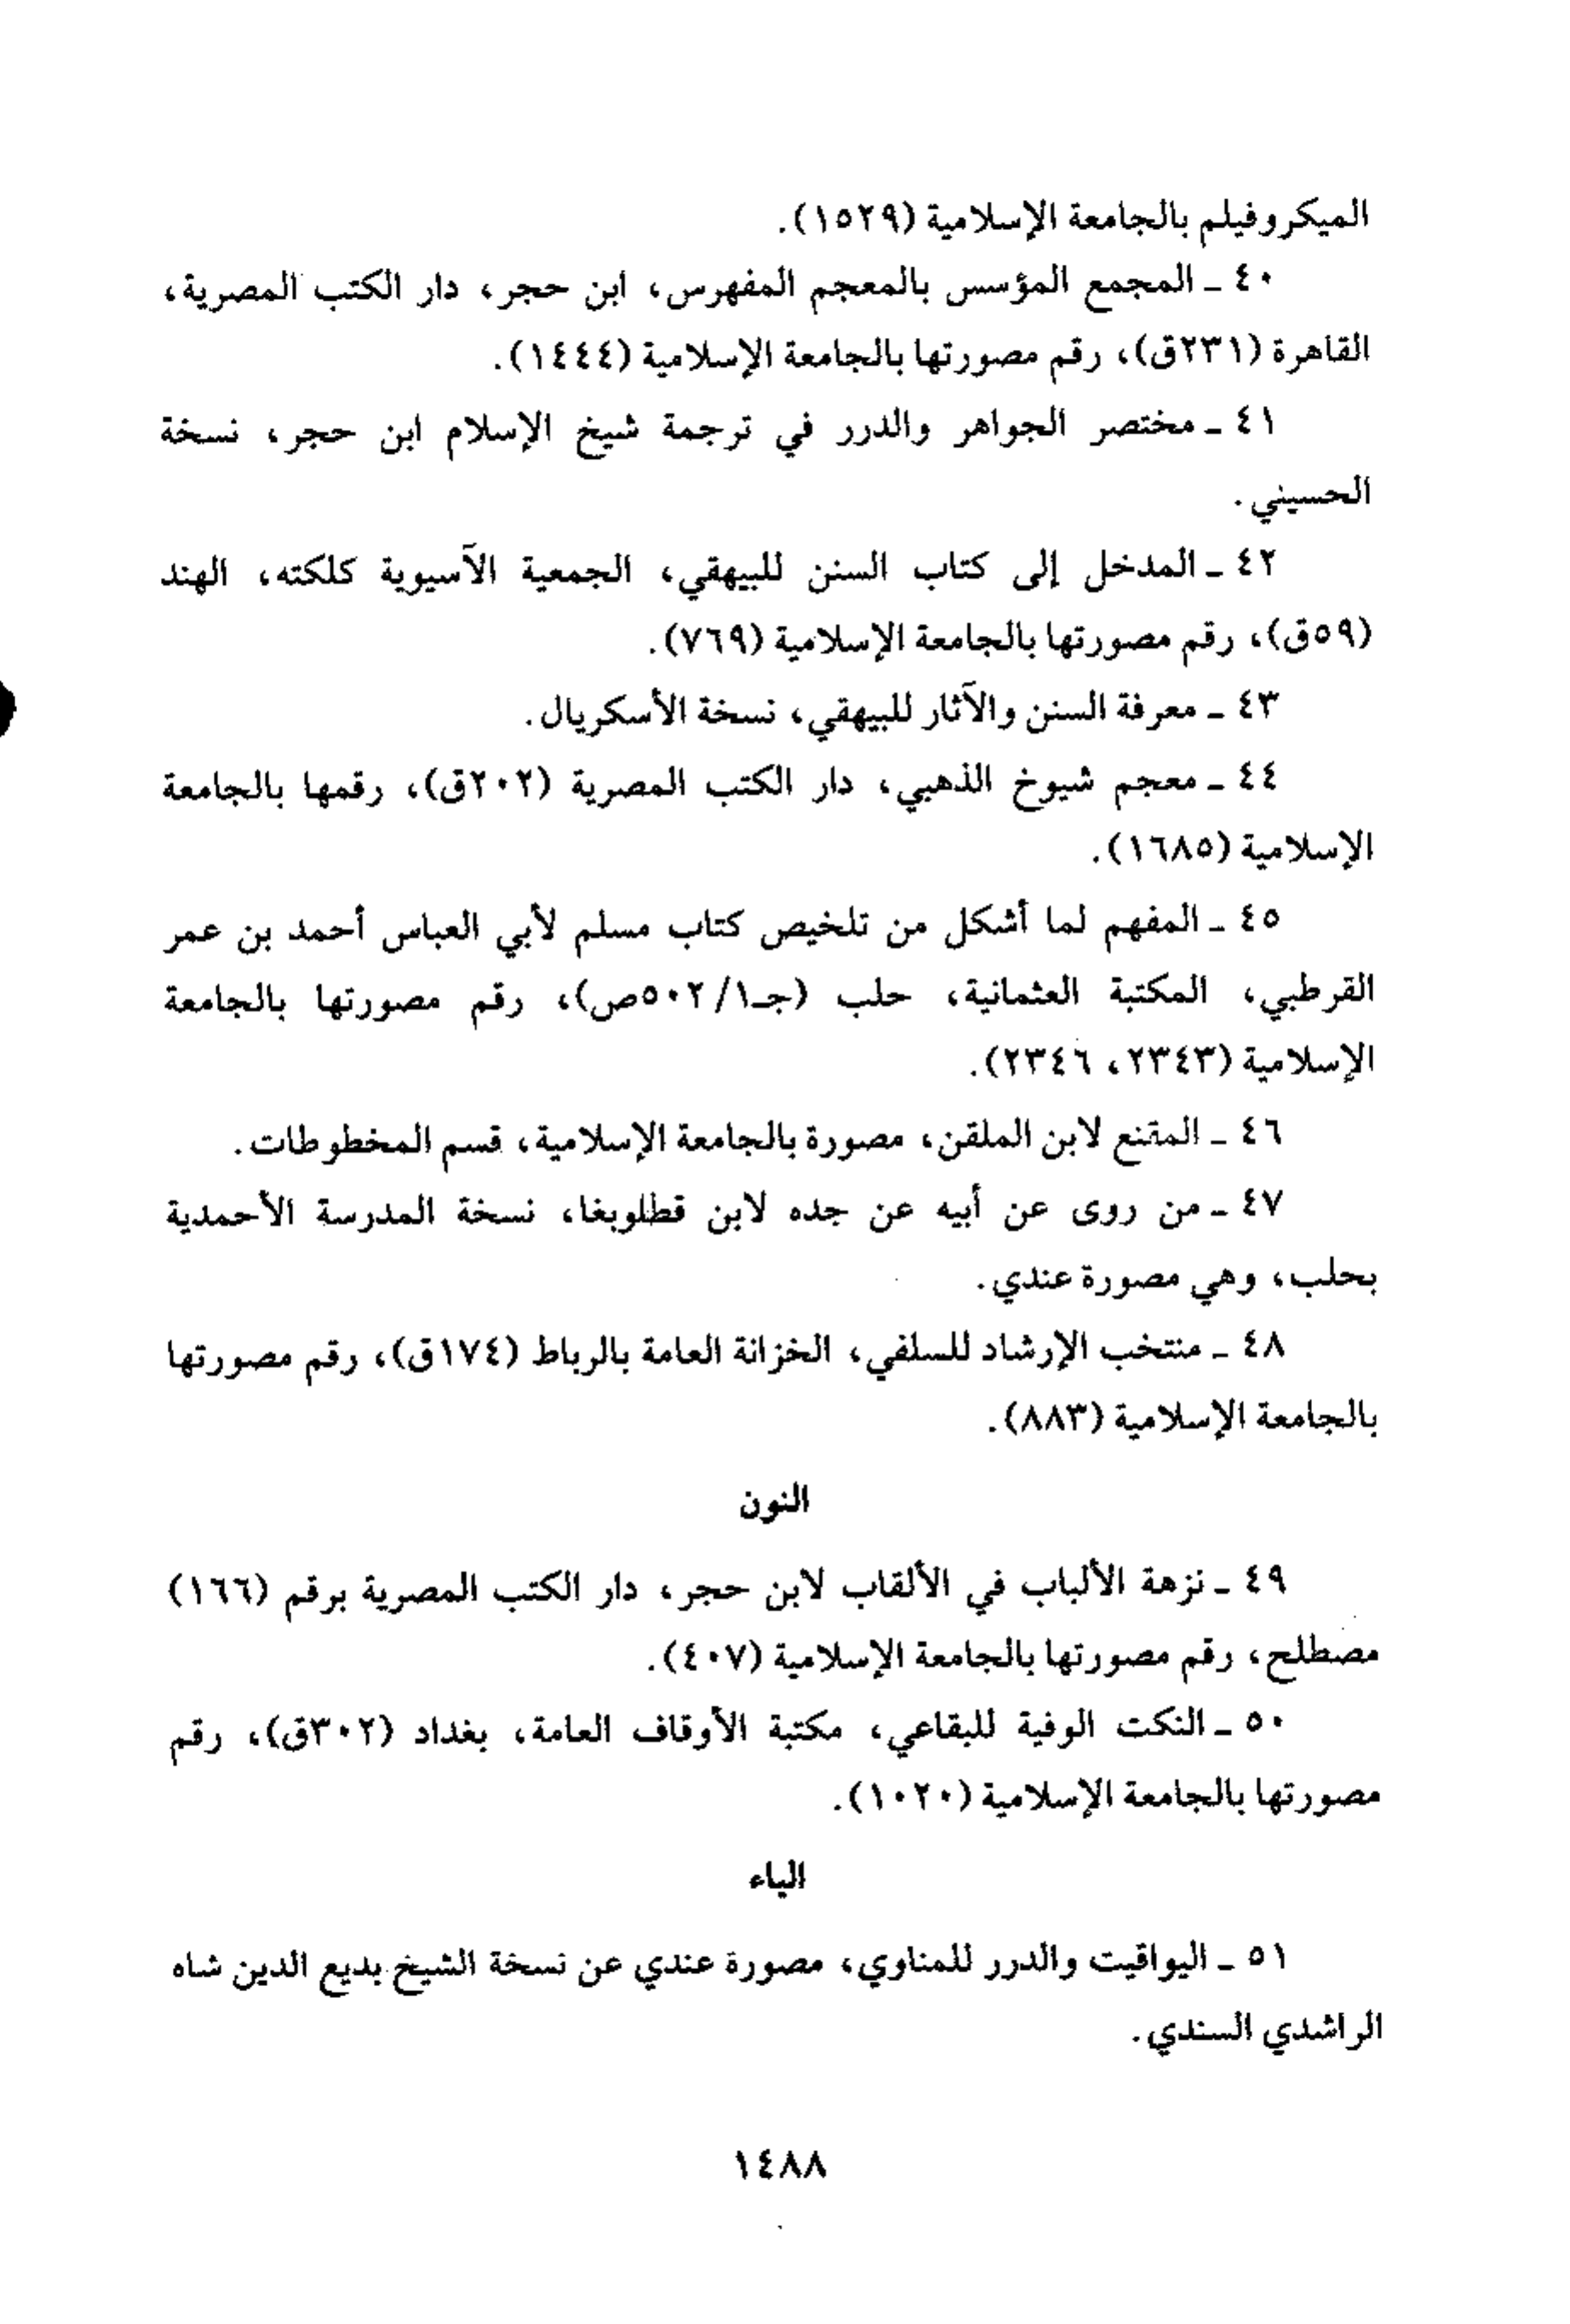 الميكروفيلم بالجامعة الإسلامية (١٥٢٩).
٤٠ ـ المجمع المؤسس بالمعجم المفهرس، ابن حجر، دار الكتب المصرية،
القاهرة (٢٣١ق)، رقم مصورتها بالجامعة الإسلامية (١٤٤٤).
٤١ ـ مختصر الجواهر والدرر في ترجمة شيخ الإسلام ابن حجر، نسخة
الحسيني.
٤٢ ـ المدخل إلى كتاب السنن للبيهقي، الجمعية الآسيوية كلكته، الهند
(٥٩ق)، رقم مصورتها بالجامعة الإسلامية (٧٦٩).
٤٣ ـ معرفة السنن والآثار للبيهقي، نسخة الأسكريال.
٤٤ ـ معجم شيوخ الذهبي، دار الكتب المصرية (٢٠٢ق)، رقمها بالجامعة
الإسلامية (١٦٨٥).
٤٥ ـ المفهم لما أشكل من تلخيص كتاب مسلم لأبي العباس أحمد بن عمر
القرطبي، المكتبة العثمانية، حلب (جـ١/ ٥٠٢ص)، رقم مصورتها بالجامعة
الإسلامية (٢٣٤٣، ٢٣٤٦).
٤٦ ـ المقنع لابن الملقن، مصورة بالجامعة الإسلامية، قسم المخطوطات.
٤٧ ـ من روى عن أبيه عن جده لابن قطلوبغا، نسخة المدرسة الأحمدية
بحلب، وهي مصورة عندي.
٤٨ ـ منتخب الإرشاد للسلفي، الخزانة العامة بالرباط (١٧٤ق)، رقم مصورتها
بالجامعة الإسلامية (٨٨٣).
النون
٤٩ ـ نزهة الألباب في الألقاب لابن حجر، دار الكتب المصرية برقم (١٦٦)
مصطلح، رقم مصورتها بالجامعة الإسلامية (٤٠٧).
٥٠ ـ النكت الوفية للبقاعي، مكتبة الأوقاف العامة، بغداد (٣٠٢ق)، رقم
مصورتها بالجامعة الإسلامية (١٠٢٠).
الياء
٥١ ـ اليواقيت والدرر للمناوي، مصورة عندي عن نسخة الشيخ بديع الدين شاه
الراشدي السندي.
١٤٨٨